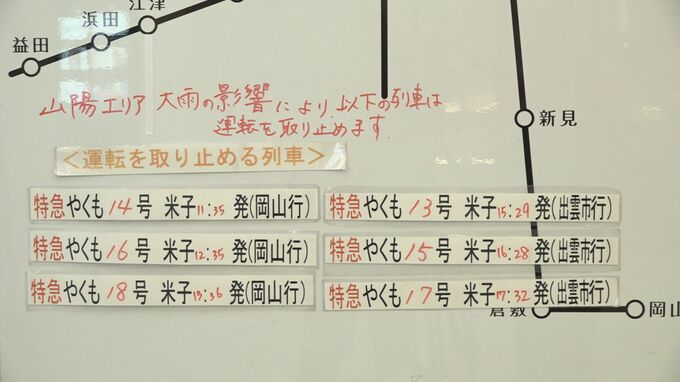 江津
浜田
益田
山陽エリア 大雨の影響により、以下の列車は
運転を取り止めます
新見
＜運転を取り止める列車＞
特急やくも14号 米子11:35 発(岡山行)
特急やくも13号 米子15:29 発(出雲市行)
特急やくも16号 米子12:35 発(岡山行)
特急やくも15号 米子16:28 発(出雲市行)
特急やくも18号 米子13:36 発(岡山行)
特急やくも17号 米子17:32 発(出雲市行)
倉敷
岡山